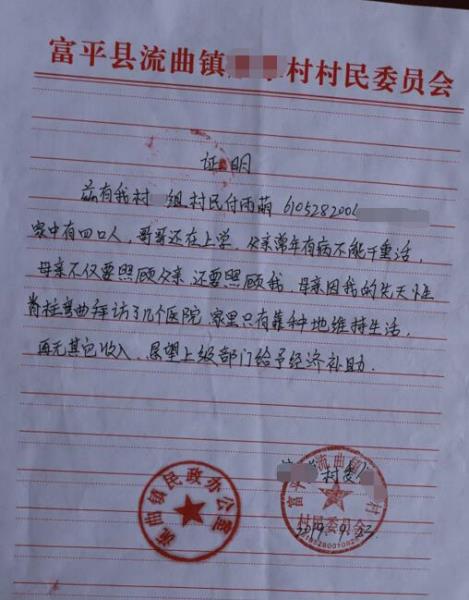 富平县流曲镇 村村民委员会
证明
兹有我村 组村民付雨萌 610528200
家中有四口人,哥哥还在上学,父亲常年有病不能干重活,
母亲不仅要照顾父亲,还要照顾我,母亲因我的先天性
脊柱弯曲拜访了几个医院,家里只有靠种地维持生活,
再无其它收入,恳望上级部门给予经济补助.
村委
2019.9.22
流曲镇民政办公室
富平县流曲镇 村
村民委员会